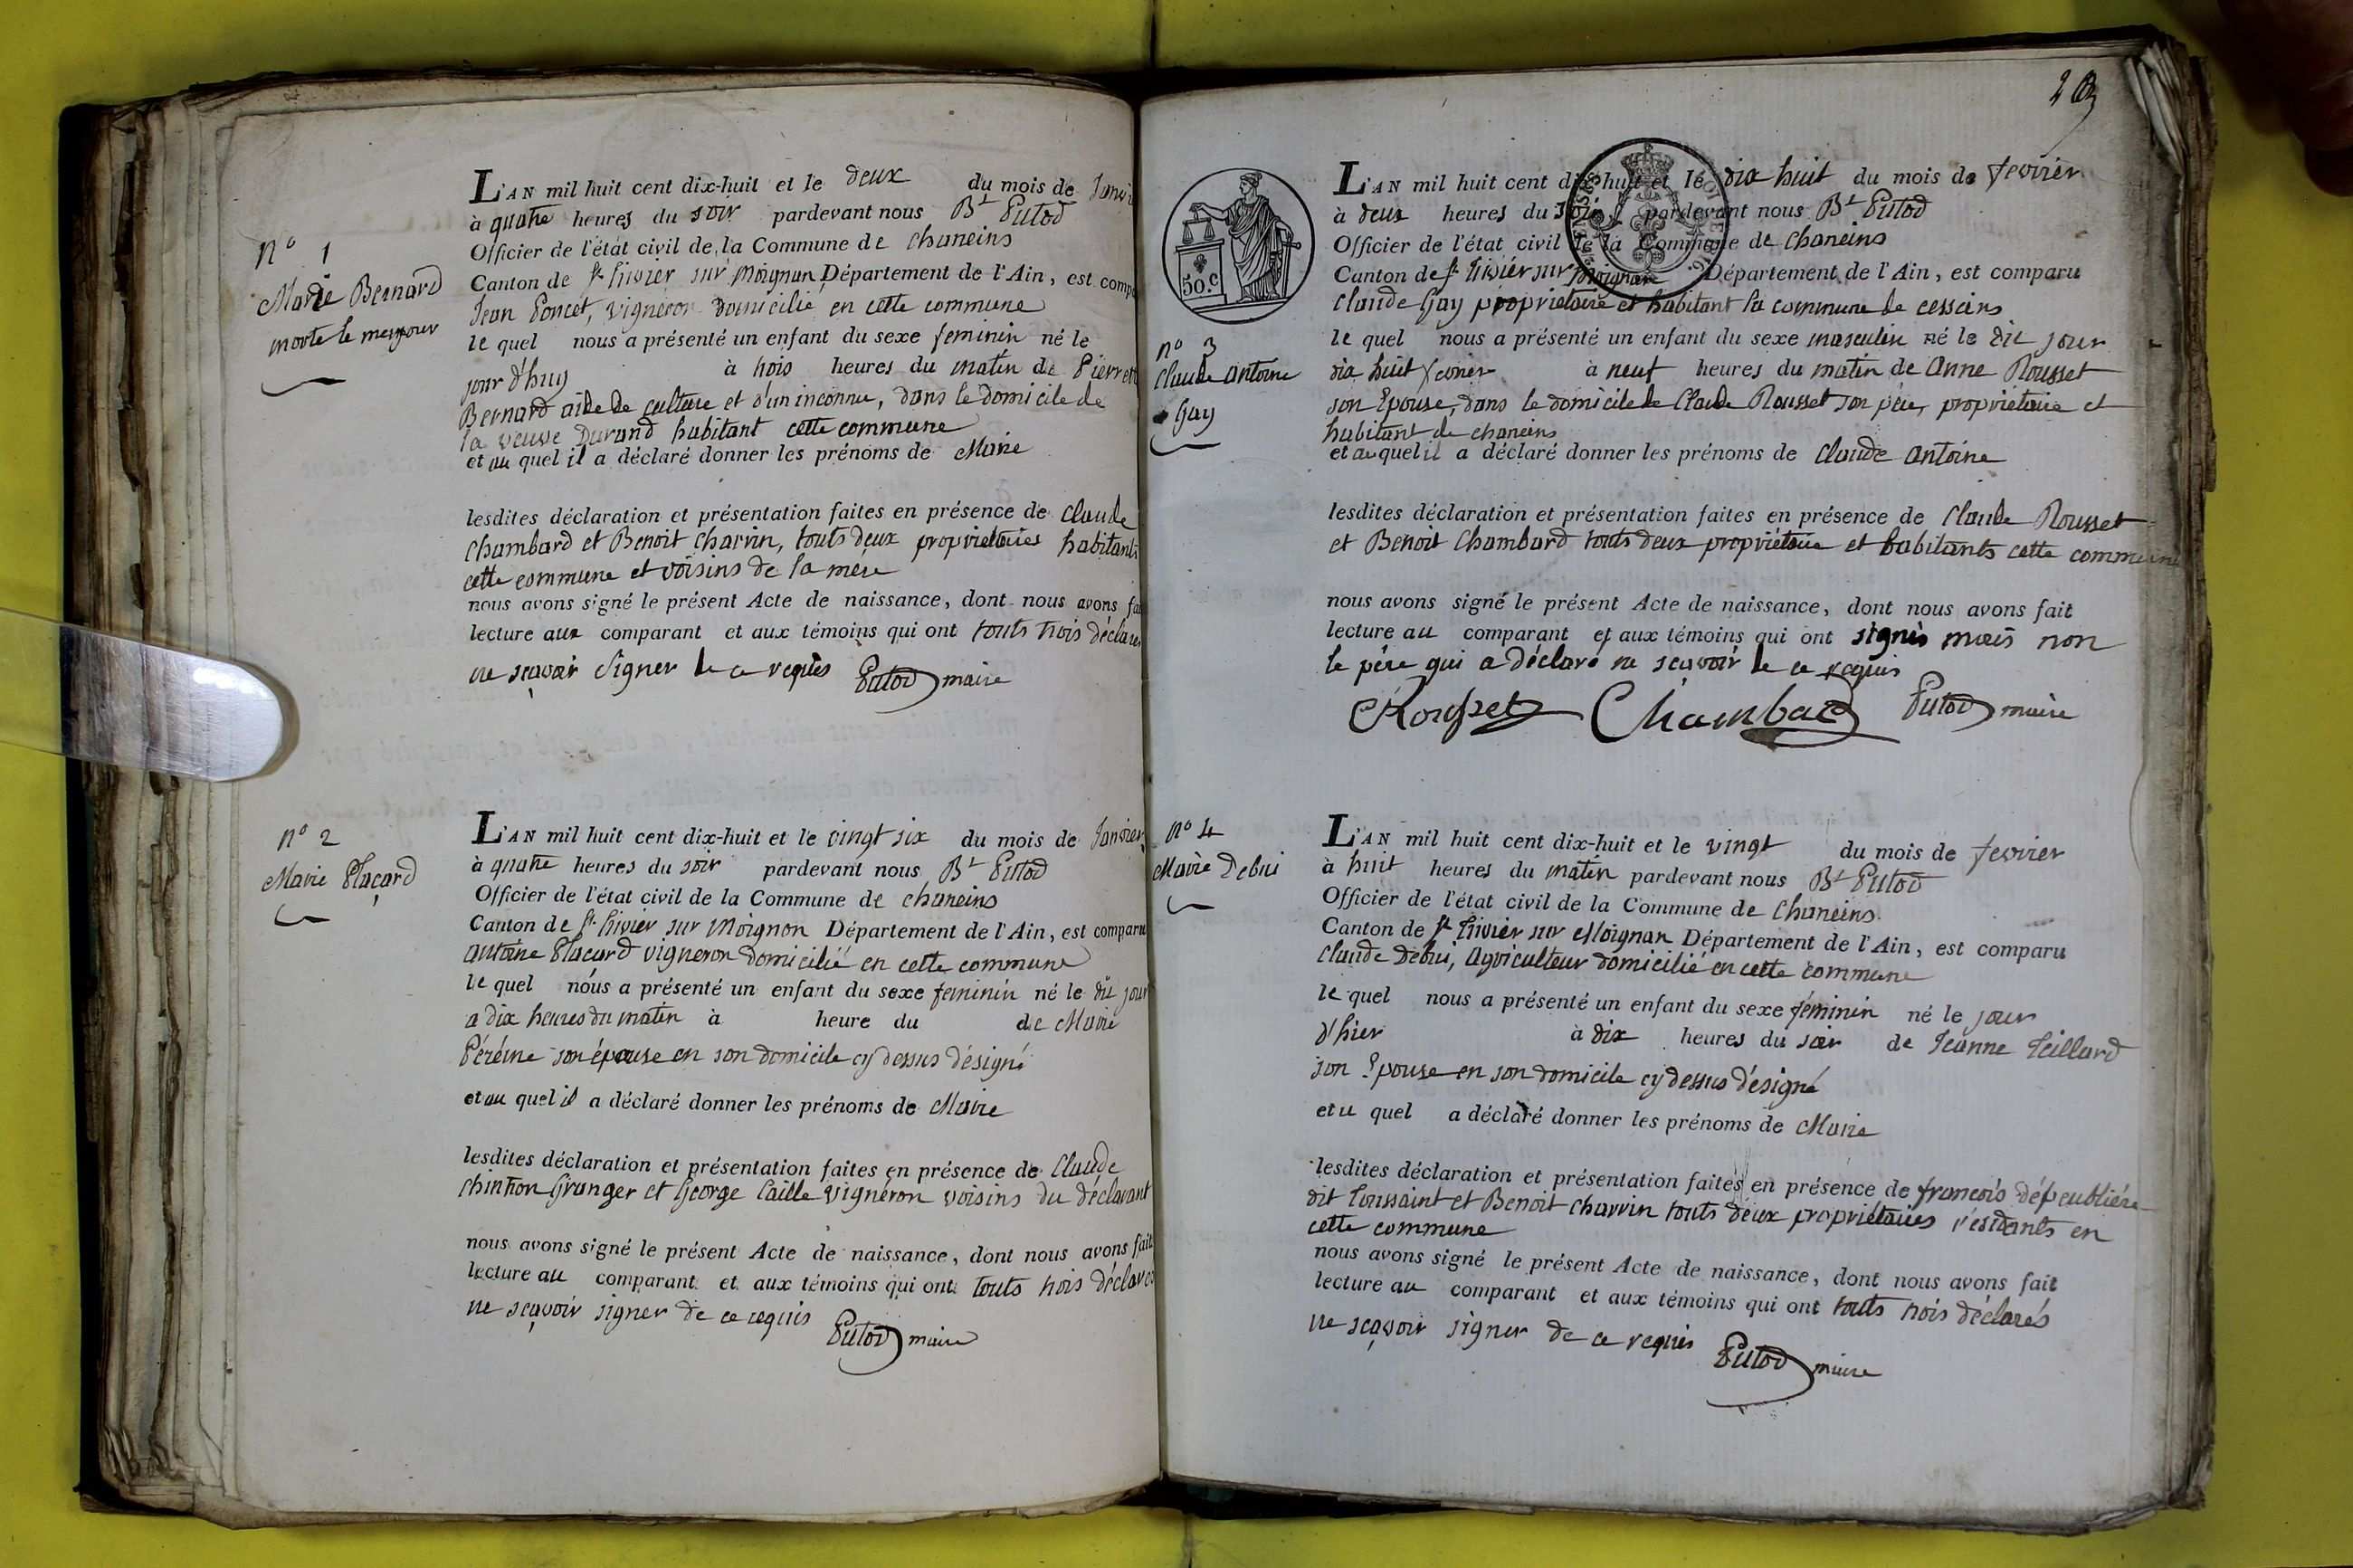 nº 1
Marie Bernard
morte le mesme jour
L'AN mil huit cent dix-huit et le deux du mois de Janvi
à quatre heures du soir pardevant nous Bt Putod
Officier de l'état civil de la Commune de chaneins
Canton de St trivier sur moignan Département de l'Ain, est compa
Jean Poncet, vigneron domicilié en cette commune
le quel nous a présenté un enfant du sexe feminin né le
jour d'huy à trois heures du matin de Pierrett
Bernard aide de culture et d'un inconnu, dans le domicile de
la veuve Durand habitant cette commune
et au quel il a déclaré donner les prénoms de Marie
lesdites déclaration et présentation faites en présence de claude
Chambard et Benoit charvin, touts deux proprietaires habitants
cette commune et voisins de la mère
nous avons signé le présent Acte de naissance, dont nous avons fai
lecture aux comparant et aux témoins qui ont touts trois déclare
ne sçavoir signer de ce requis Putod maire
nº 2
Marie Plaçard
L'AN mil huit cent dix-huit et le vingt six du mois de Janvier
à quatre heures du soir pardevant nous Bt Putod
Officier de l'état civil de la Commune de chaneins
Canton de St trivier sur Moignon Département de l'Ain, est comparu
antoine Plaçard vigneron domicilié en cette commune
le quel nous a présenté un enfant du sexe feminin né le dit jour
a dix heures du matin à heure du de Marie
son épouse en son domicile cy dessus désigné
et au quel il a déclaré donner les prénoms de Marie
lesdites déclaration et présentation faites en présence de Claude
Granger et George Caille vigneron voisins du déclarant
nous avons signé le présent Acte de naissance, dont nous avons fait
lecture au comparant et aux témoins qui ont touts trois déclares
ne sçavoir signer de ce requis Putod maire
50.C
nº 3
Claude antoine
Gay
L'AN mil huit cent dix-huit et le dix huit du mois de fevrier
à deux heures du soir pardevant nous Bt Putod
Officier de l'état civil de la Commune de chaneins
Canton de St trivier sur moignan Département de l'Ain, est comparu
claude Gay proprietaire et habitant la commune de cesseins
le quel nous a présenté un enfant du sexe masculin né le dit jour
dix huit fevrier à neuf heures du matin de Anne Rousset
son Epouse, dans le domicile de Claude Rousset son père, propriétaire et
habitant de chaneins
et au quel il a déclaré donner les prénoms de claude antoine
lesdites déclaration et présentation faites en présence de Claude Rousset
et Benoit Chambard touts deux propriétaire et habitants cette commune
nous avons signé le présent Acte de naissance, dont nous avons fait
lecture au comparant et aux témoins qui ont signés mais non
le père qui a déclaré ne sçavoir de ce requis
Rousset Chambard Putod maire
nº 4
Marie Debui
L'AN mil huit cent dix-huit et le vingt du mois de fevrier
à huit heures du matin pardevant nous Bt Putod
Officier de l'état civil de la Commune de chaneins
Canton de St trivier sur Moignan Département de l'Ain, est comparu
claude Debui, agriculteur domicilié en cette commune
le quel nous a présenté un enfant du sexe féminin né le jour
d'hier à dix heures du soir de Jeanne Teillard
son Epouse en son domicile cy dessus désigné
et u quel a déclaré donner les prénoms de Marie
lesdites déclaration et présentation faites en présence de françois
dit Toussaint et Benoit charvin touts deux proprietaires résidants en
cette commune
nous avons signé le présent Acte de naissance, dont nous avons fait
lecture au comparant et aux témoins qui ont touts trois déclarés
ne sçavoir signer de ce requis Putod maire